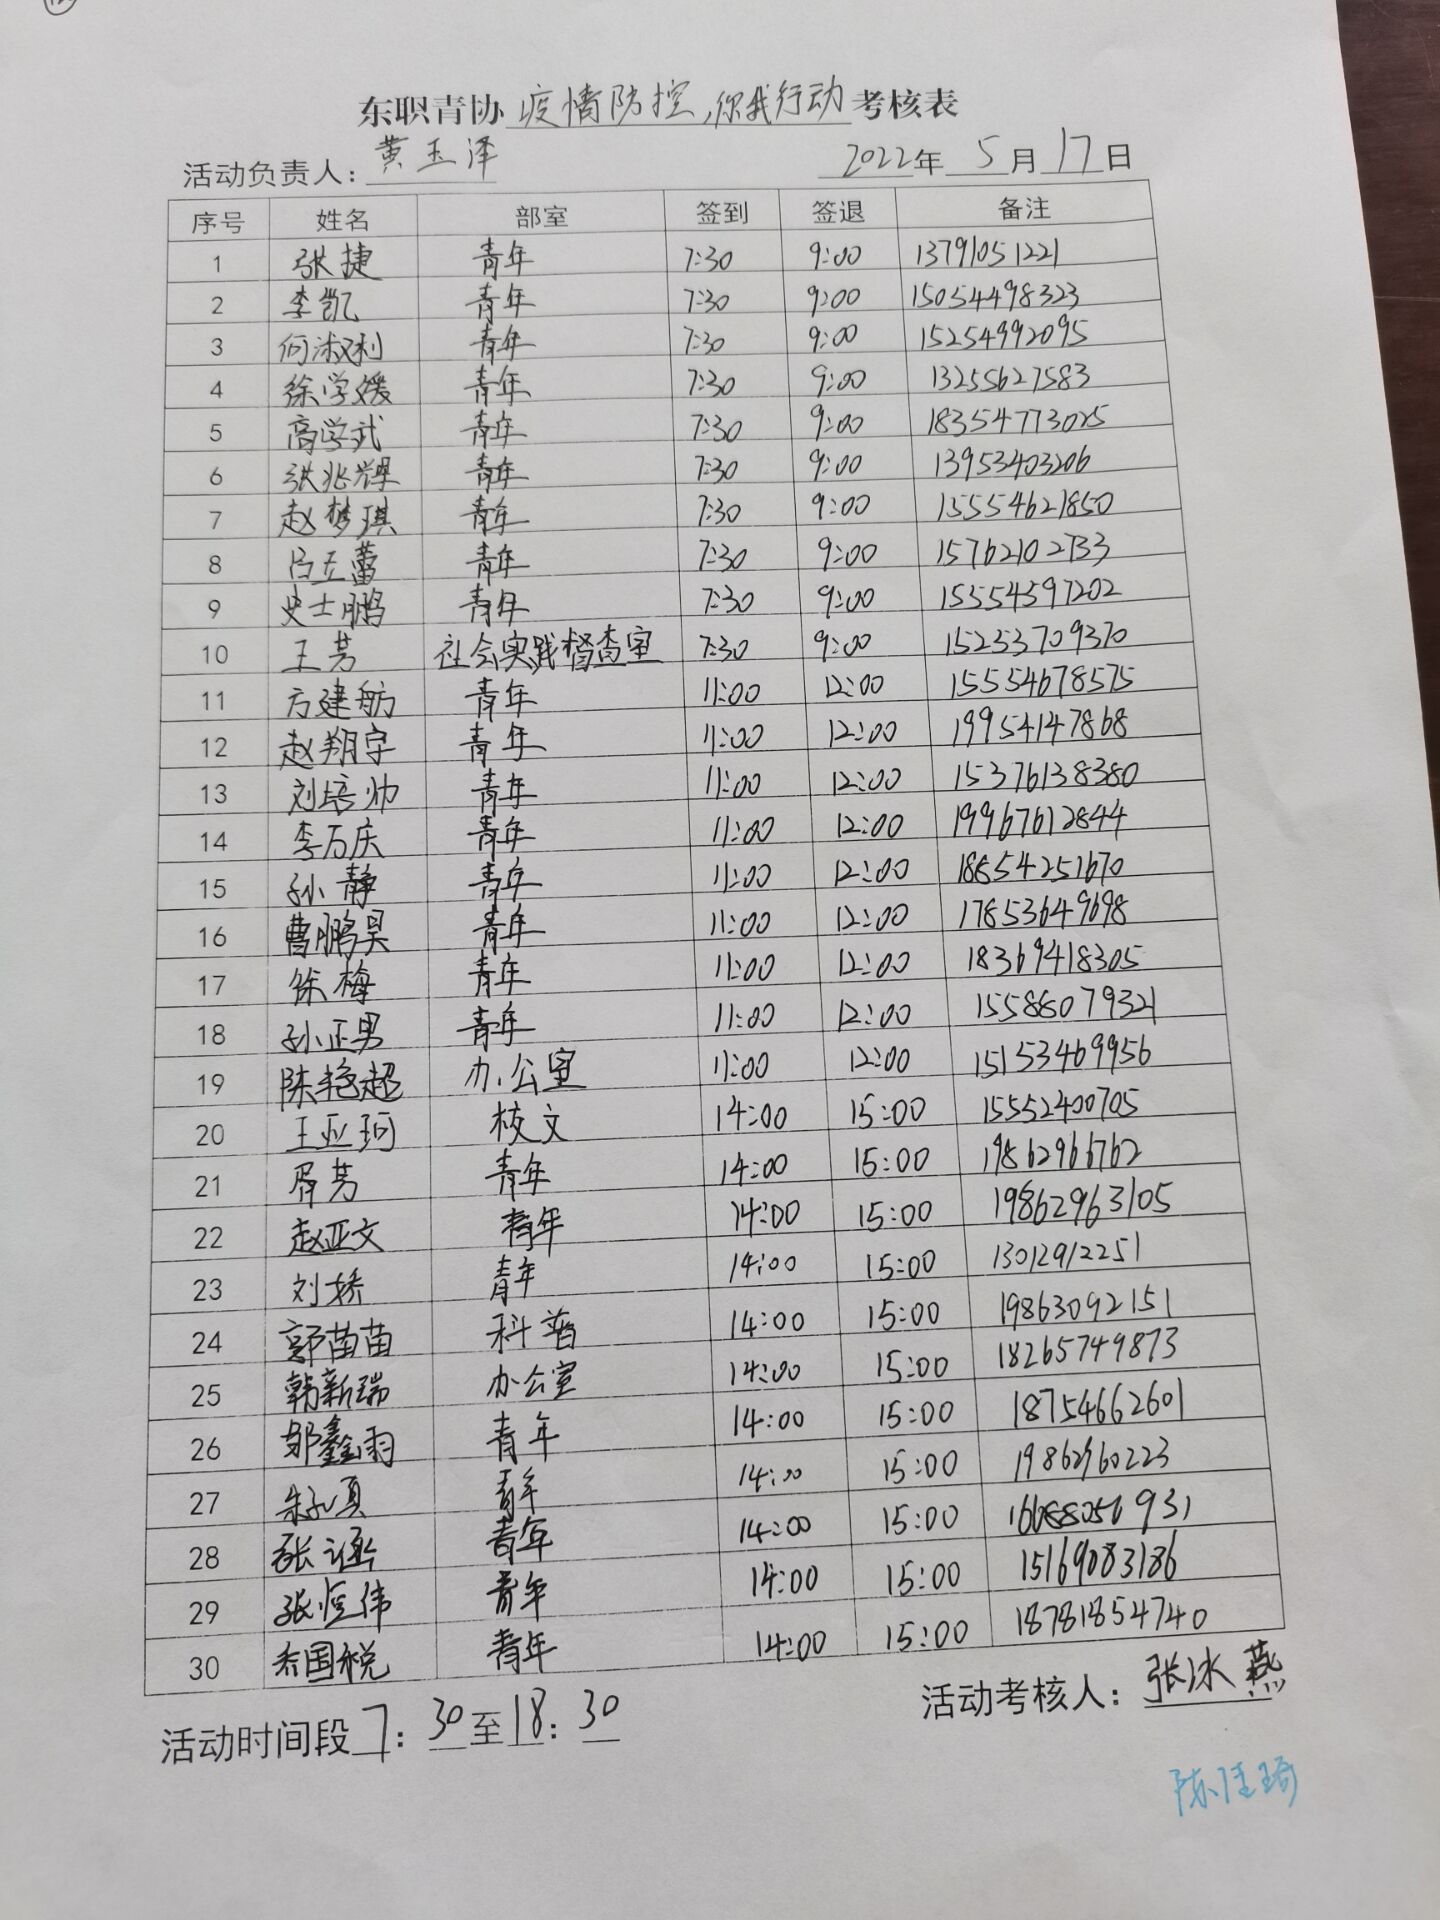 东职青协 疫情防控,你我行动 考核表
活动负责人: 黄玉泽 2022年 5月17日
序号 姓名 部室 签到 签退 备注
1 张捷 青年 7:30 9:00 13791051221
2 李凯 青年 7:30 9:00 15054498323
3 何淑利 青年 7:30 9:00 15254992095
4 徐学媛 青年 7:30 9:00 13255627583
5 高学武 青年 7:30 9:00 18354773025
6 张兆辉 青年 7:30 9:00 13953403206
7 赵梦琪 青年 7:30 9:00 15554621850
8 吕立蕾 青年 7:30 9:00 15762102733
9 史士鹏 青年 7:30 9:00 15554597202
10 王芳 社会实践督查室 7:30 9:00 15253709370
11 方建舫 青年 11:00 12:00 15554678575
12 赵翔宇 青年 11:00 12:00 19954147868
13 刘培帅 青年 11:00 12:00 15376138380
14 李万庆 青年 11:00 12:00 19967612844
15 孙静 青年 11:00 12:00 18854251670
16 曹鹏昊 青年 11:00 12:00 17853649698
17 徐梅 青年 11:00 12:00 18369418305
18 孙正男 青年 11:00 12:00 15588079321
19 陈艳超 办公室 11:00 12:00 15153469956
20 王亚珂 校文 14:00 15:00 15552400705
21 胥芳 青年 14:00 15:00 19862966762
22 赵亚文 青年 14:00 15:00 19862963105
23 刘娇 青年 14:00 15:00 13012912251
24 郭苗苗 科普 14:00 15:00 19863092151
25 韩新瑞 办公室 14:00 15:00 18265749873
26 邹鑫雨 青年 14:00 15:00 18754662601
27 青年 14:00 15:00 19862960223
28 张涵 青年 14:00 15:00
29 张恒伟 青年 14:00 15:00 15169083186
30 乔国税 青年 14:00 15:00 18781854740
活动时间段 7:30至18:30 活动考核人: 张冰燕
陈佳琦